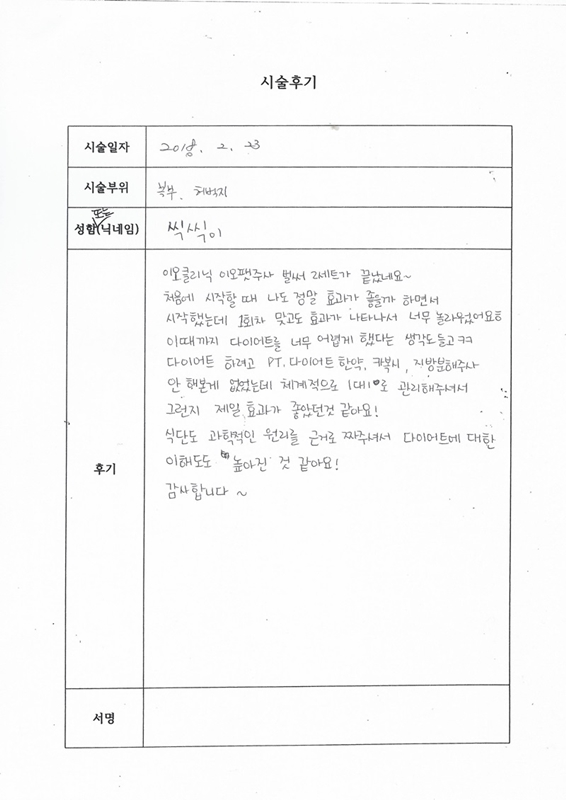 시술후기
시술일자 2018. 2. 23
시술부위 복부. 허벅지
성함(닉네임) 또는 씩씩이
이오클리닉 이오팻주사 벌써 2세트가 끝났네요~
처음에 시작할 때 나도 정말 효과가 좋을까 하면서
시작했는데 1회차 맞고도 효과가 나타나서 너무 놀라웠었어요ㅎ
이때까지 다이어트를 너무 어렵게 했다는 생각도들고ㅋㅋ
다이어트 하려고 PT. 다이어트 한약, 카복시, 지방분해주사
안 해본게 없었는데 체계적으로 1대1로 관리해주셔서
그런지 제일 효과가 좋았던것 같아요!
후기
식단도 과학적인 원리를 근거로 짜주셔서 다이어트에 대한
이해도도 높아진 것 같아요!
감사합니다~
서명